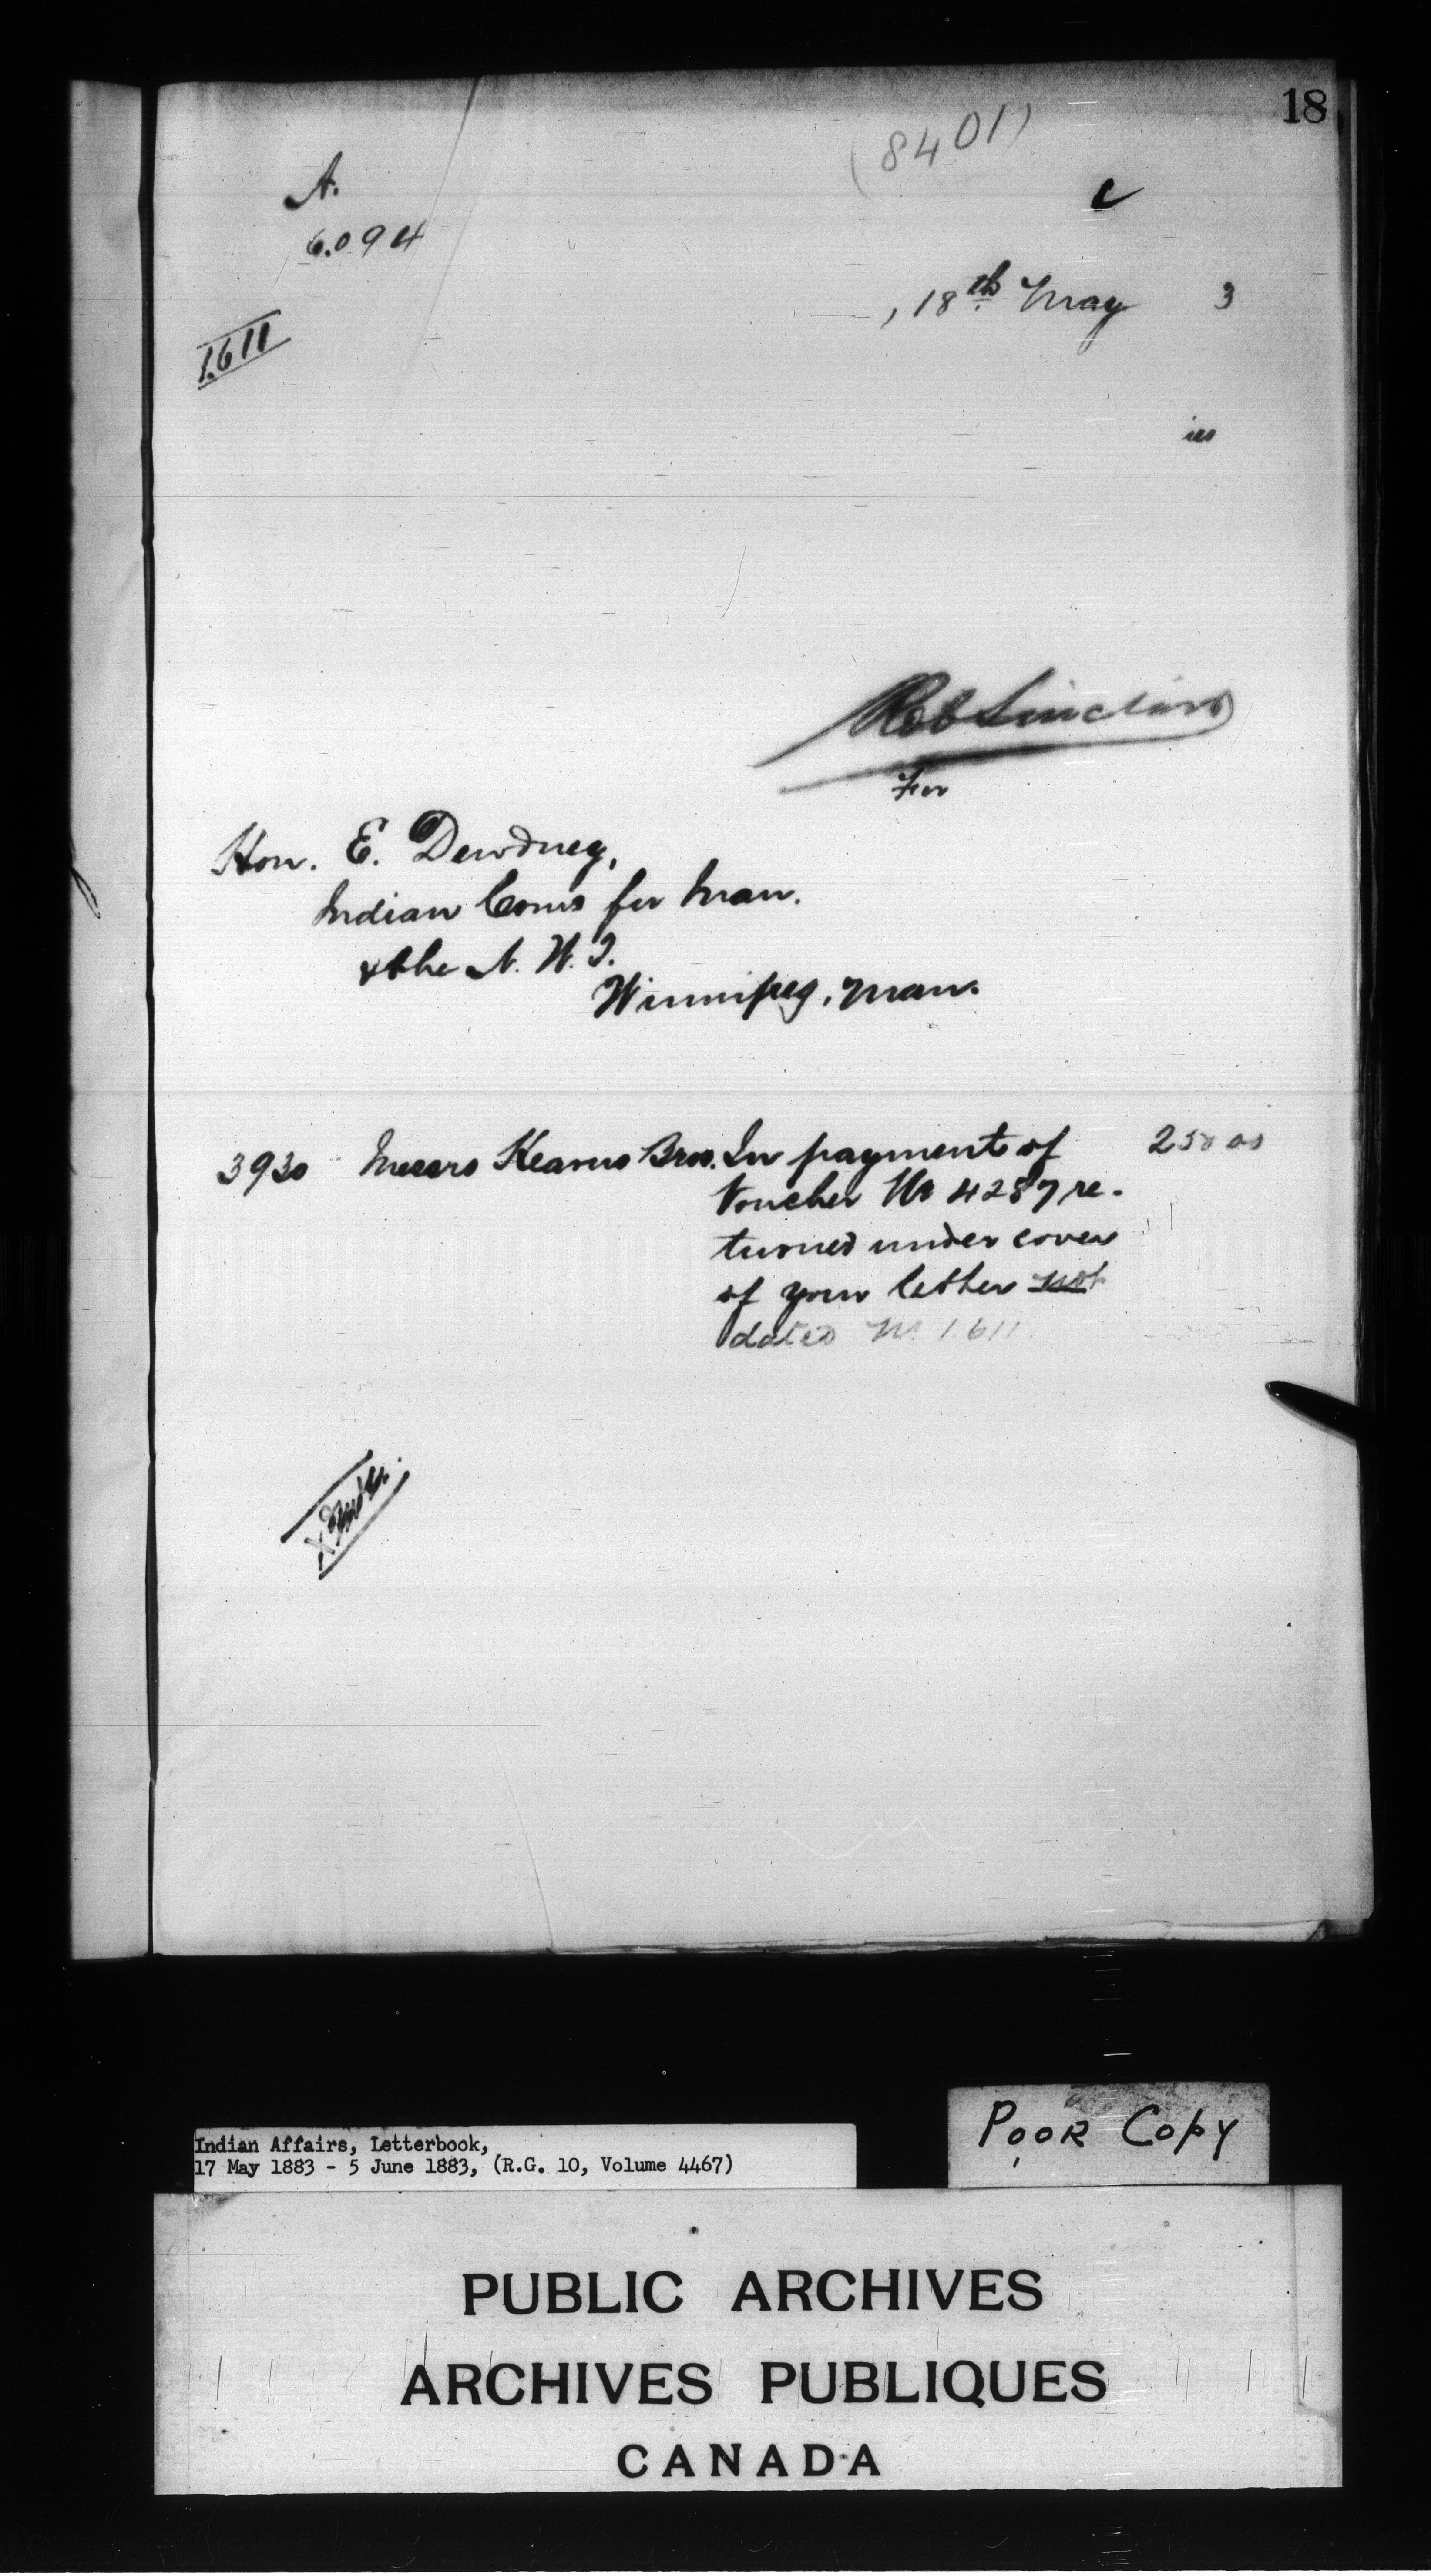 18
(8401)
A.
6.094
, 18th May 3
1.611
ies
Rob Sinclair
For
Hon. E. Dewdney,
Indian Coms for Man.
& the N. W. T.
Winnipeg, Man.
3930 Messrs Kearns Bros. In payment of 250 00
Voucher No 4287 re-
turned under cover
of your letter not
dated No 1.611
Indian Affairs, Letterbook,
17 May 1883 - 5 June 1883, (R.G. 10, Volume 4467)
Poor Copy
PUBLIC ARCHIVES
ARCHIVES PUBLIQUES
CANADA